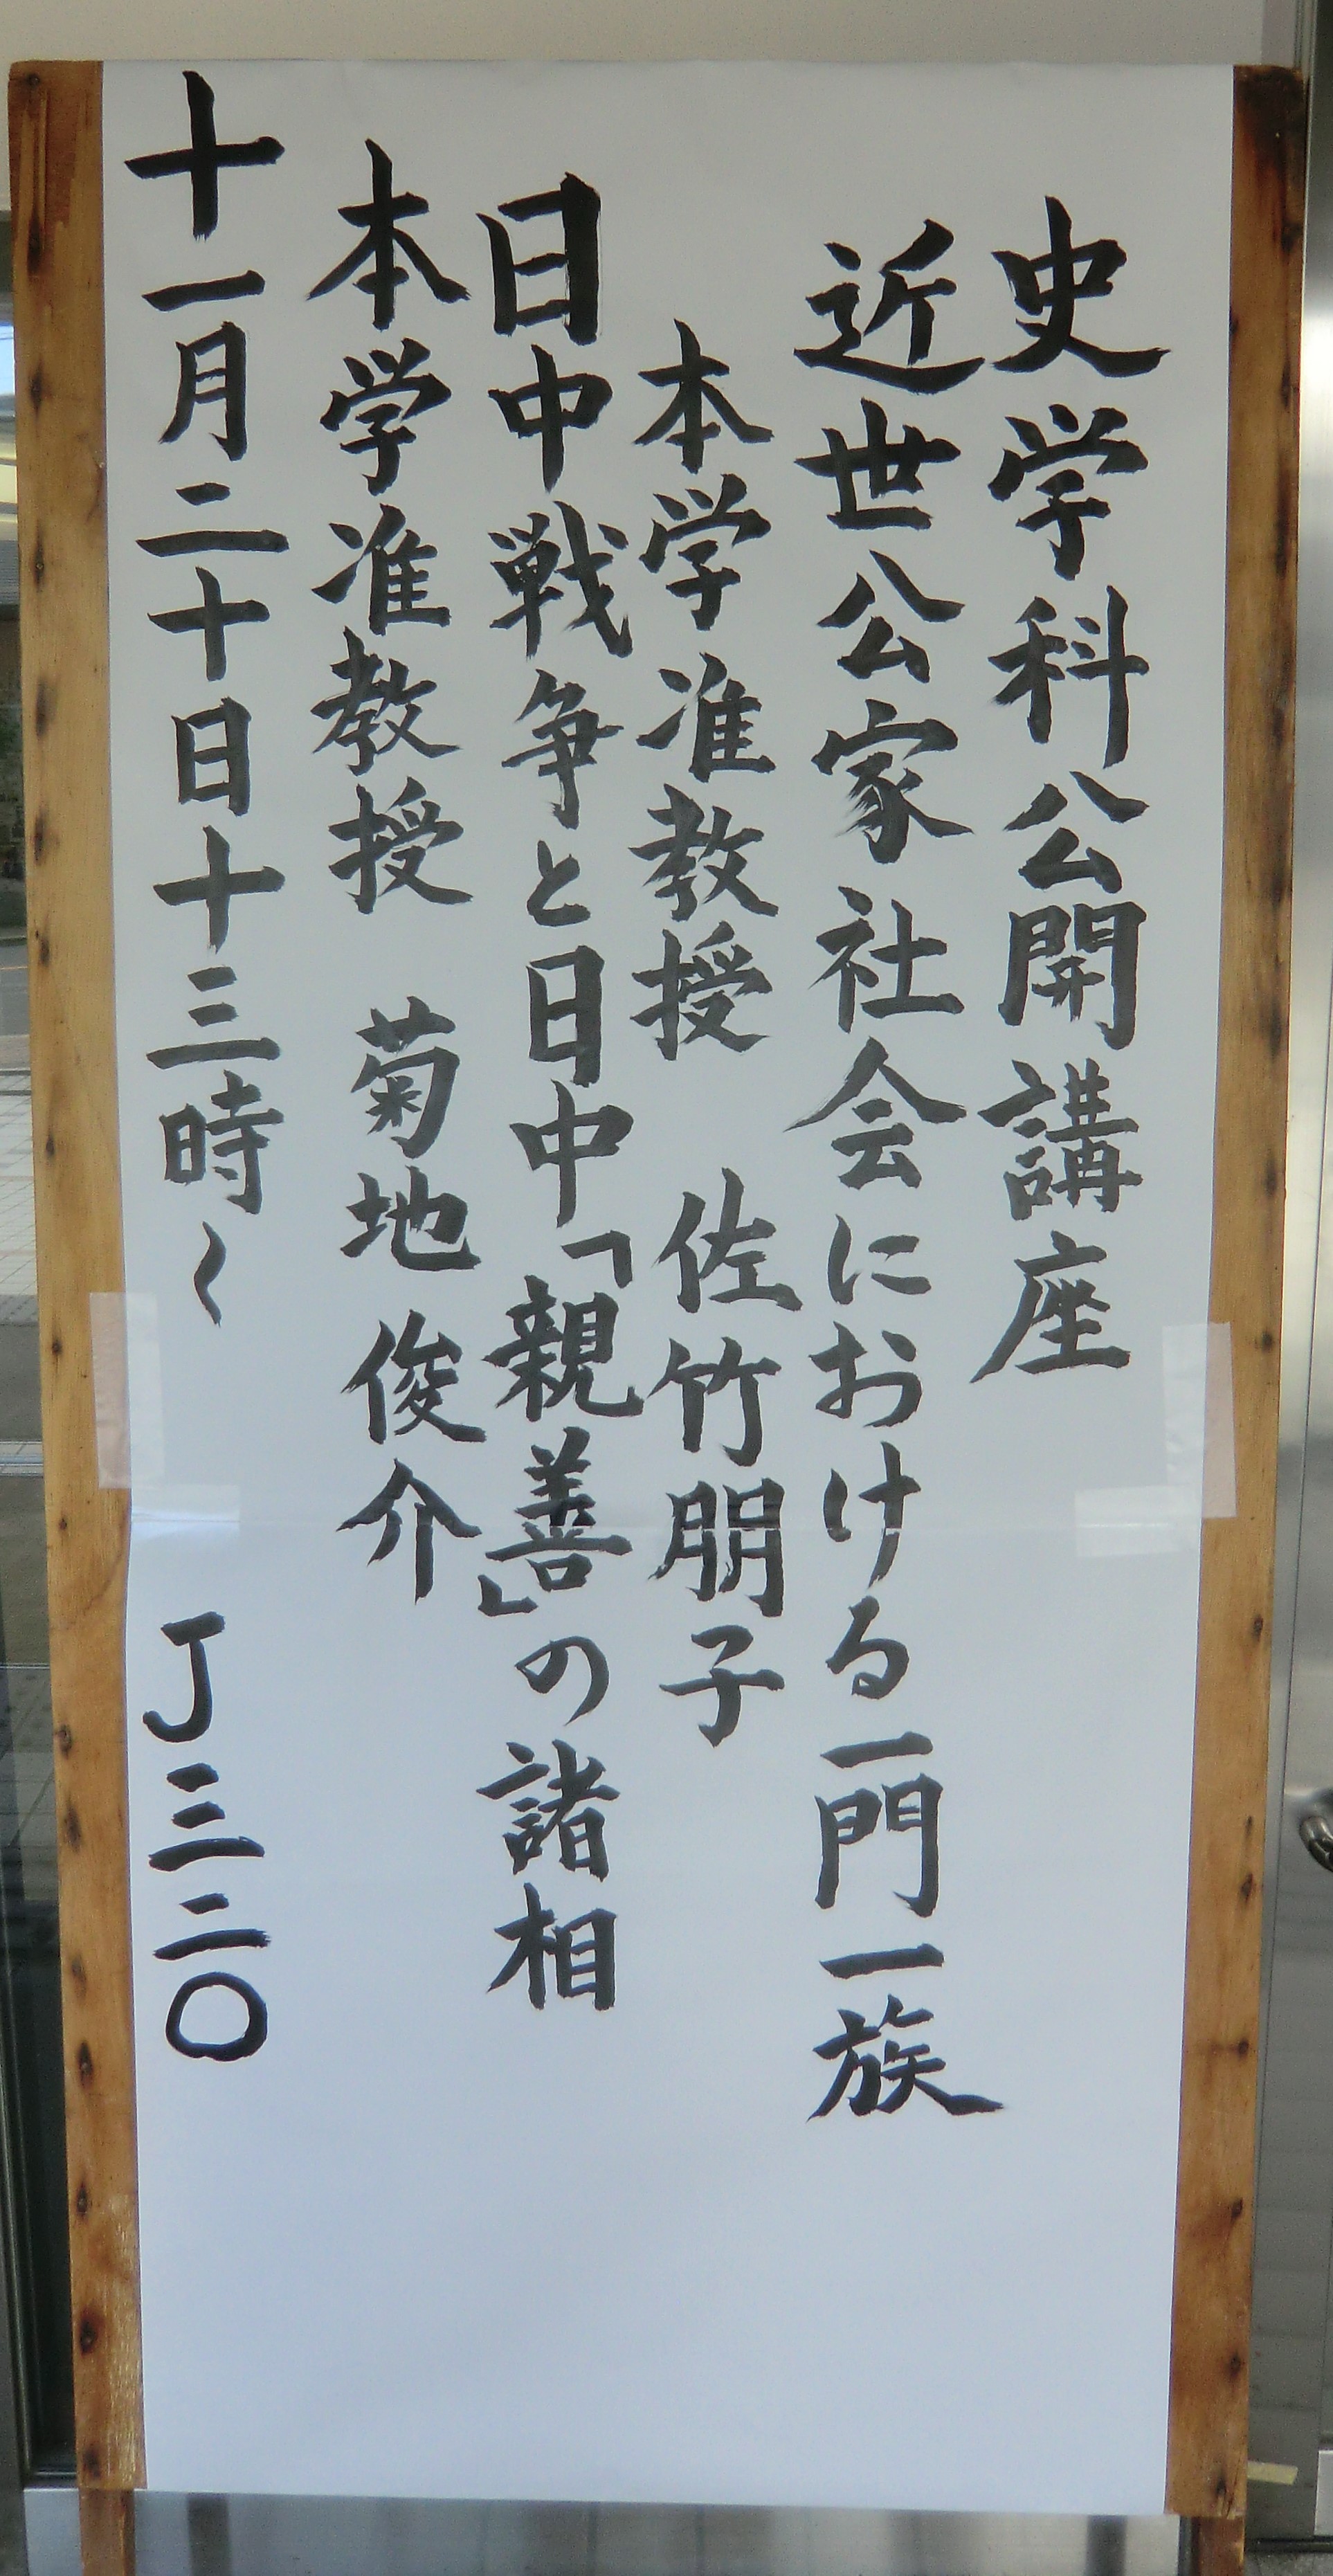 史学科公開講座
近世公家社会における一門一族
本学准教授　佐竹朋子
日中戦争と日中「親善」の諸相
本学准教授　菊地俊介
十一月二十日十三時〜　J三二〇